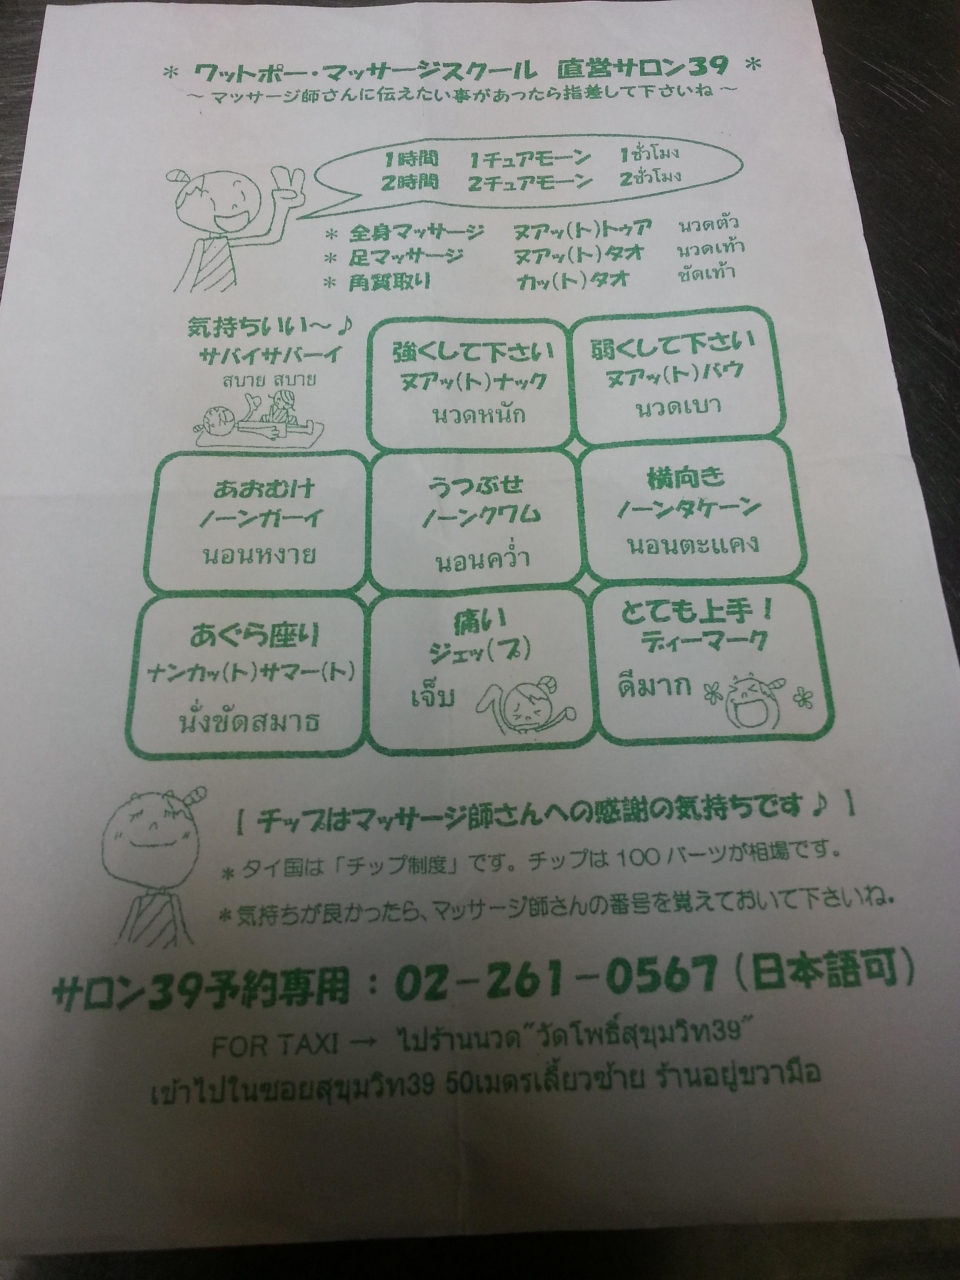 * ワットポー・マッサージスクール 直営サロン39 *
～ マッサージ師さんに伝えたい事があったら指差して下さいね ～
1時間 1チュアモーン 1ชั่วโมง
2時間 2チュアモーン 2ชั่วโมง
* 全身マッサージ ヌアッ(ト)トゥア นวดตัว
* 足マッサージ ヌアッ(ト)タオ นวดเท้า
* 角質取り カッ(ト)タオ ขัดเท้า
気持ちいい～♪
サバイサバーイ
สบาย สบาย
強くして下さい
ヌアッ(ト)ナック
นวดหนัก
弱くして下さい
ヌアッ(ト)バウ
นวดเบา
あおむけ
ノーンガーイ
นอนหงาย
うつぶせ
ノーンクワム
นอนคว่ำ
横向き
ノーンタケーン
นอนตะแคง
あぐら座り
ナンカッ(ト)サマー(ト)
นั่งขัดสมาธ
痛い
ジェッ(プ)
เจ็บ
とても上手！
ディーマーク
ดีมาก
【 チップはマッサージ師さんへの感謝の気持ちです♪ 】
* タイ国は「チップ制度」です。チップは 100 バーツが相場です。
* 気持ちが良かったら、マッサージ師さんの番号を覚えておいて下さいね。
サロン39予約専用：02－261－0567 (日本語可)
FOR TAXI → ไปร้านนวด"วัดโพธิ์สุขุมวิท39"
เข้าไปในซอยสุขุมวิท39 50เมตรเลี้ยวซ้าย ร้านอยู่ขวามือ